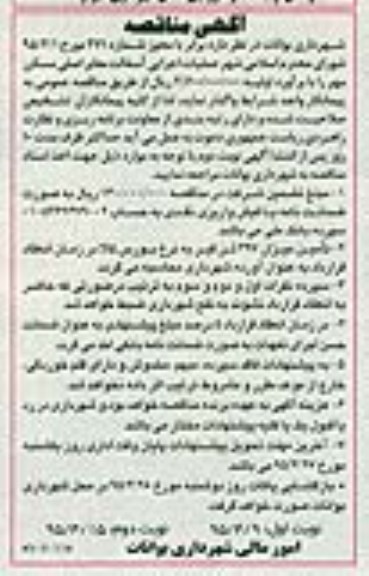 آگهی مناقصه
شهرداری بوانات در نظر دارد برابر با مجوز شماره ۲۷۱ مورخ ۹۵/۳/۱
شورای محترم اسلامی شهر عملیات اجرایی آسفالت معابر اصلی مسکن
مهر را با برآورد اولیه ریال از طریق مناقصه عمومی به
پیمانکار واجد شرایط واگذار نماید. لذا از کلیه پیمانکاران تشخیص
صلاحیت شده و دارای رتبه بندی از معاونت برنامه ریزی و نظارت
راهبردی ریاست جمهوری دعوت به عمل می آید حداکثر ظرف مدت ۱۰
روز پس از انتشار آگهی نوبت دوم با توجه به موارد ذیل جهت اخذ اسناد
مناقصه به شهرداری بوانات مراجعه نمایند.
۱- مبلغ تضمین شرکت در مناقصه ریال به صورت
ضمانت نامه یا فیش واریزی نقدی به حساب
سپرده بانک ملی می باشد.
۲- تأمین میزان ۲۴۷ تن قیر به نرخ بورس کالا در زمان انعقاد
قرارداد به عنوان آورده شهرداری محاسبه می گردد.
۳- سپرده نفرات اول و دوم و سوم به ترتیب درصورتی که حاضر
به انعقاد قرارداد نشوند به نفع شهرداری ضبط خواهد شد.
۴- در زمان انعقاد قرارداد درصد مبلغ پیشنهادی به عنوان ضمانت
حسن اجرای تعهدات به صورت ضمانت نامه بانکی اخذ می گردد.
۵- به پیشنهادات فاقد سپرده، مبهم، مخدوش و دارای قلم خوردگی،
خارج از موعد مقرر و مشروط ترتیب اثر داده نخواهد شد.
۶- هزینه آگهی به عهده برنده مناقصه خواهد بود و شهرداری در رد
یا قبول یک یا کلیه پیشنهادات مختار می باشد.
۷- آخرین مهلت تحویل پیشنهادات پایان وقت اداری روز
مورخ می باشد.
• بازگشایی پاکات روز دوشنبه مورخ در محل شهرداری
بوانات صورت خواهد گرفت.
نوبت اول: ۹۵/۳/۹ نوبت دوم: ۹۵/۳/۱۵
امور مالی شهرداری بوانات